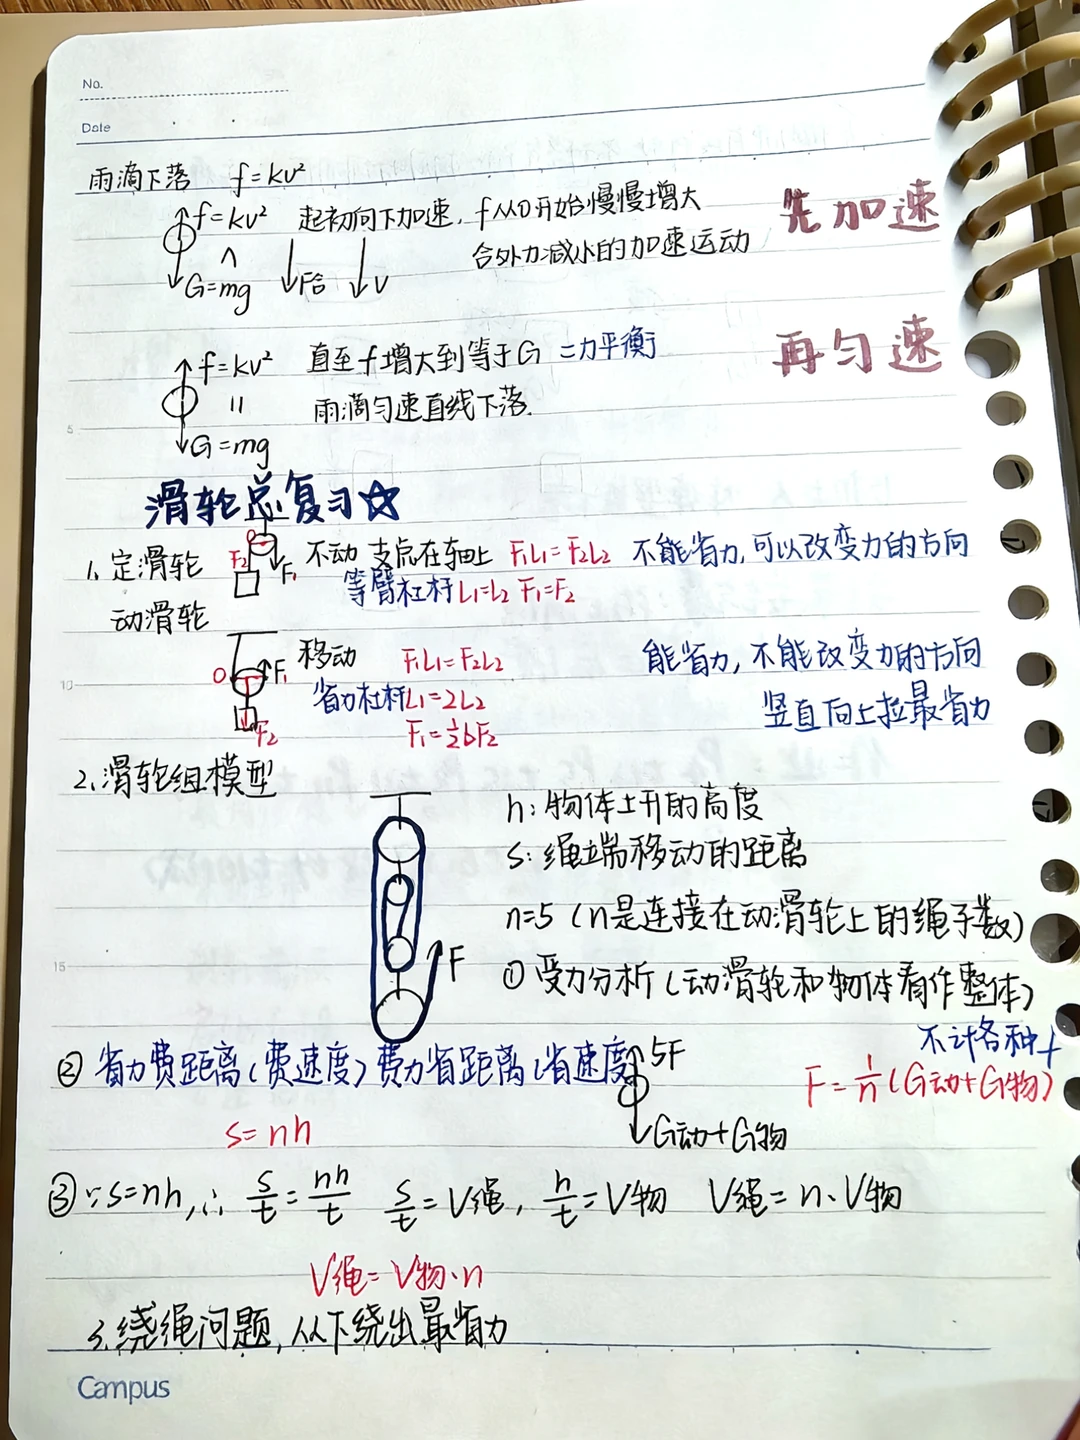 No.
Date
雨滴下落 f=kv²
f=kv² 起初向下加速, f从0开始慢慢增大 先加速
∧ 合外力减小的加速运动
G=mg F合 v
f=kv² 直至f增大到等于G 二力平衡 再匀速
= 雨滴匀速直线下落.
G=mg
5
滑轮总复习☆
1、定滑轮 F₂ F₁ 不动 支点在轴上 F₁L₁=F₂L₂ 不能省力,可以改变力的方向
等臂杠杆 L₁=L₂ F₁=F₂
动滑轮
O F₁ 移动 F₁L₁=F₂L₂ 能省力,不能改变力的方向
10
省力杠杆 L₁=2L₂ 竖直向上拉最省力
F₂ F₁=½F₂
2、滑轮组模型
h:物体上升的高度
s:绳端移动的距离
n=5 (n是连接在动滑轮上的绳子数)
15
F ①受力分析(动滑轮和物体看作整体)
不计各种f
②省力费距离(费速度)费力省距离(省速度) 5F
F=1/n(G动+G物)
s=nh G动+G物
③∵s=nh,∴ s/t=nh/t s/t=V绳, h/t=V物 V绳=n·V物
V绳=V物·n
3.绕绳问题,从下绕出最省力
Campus